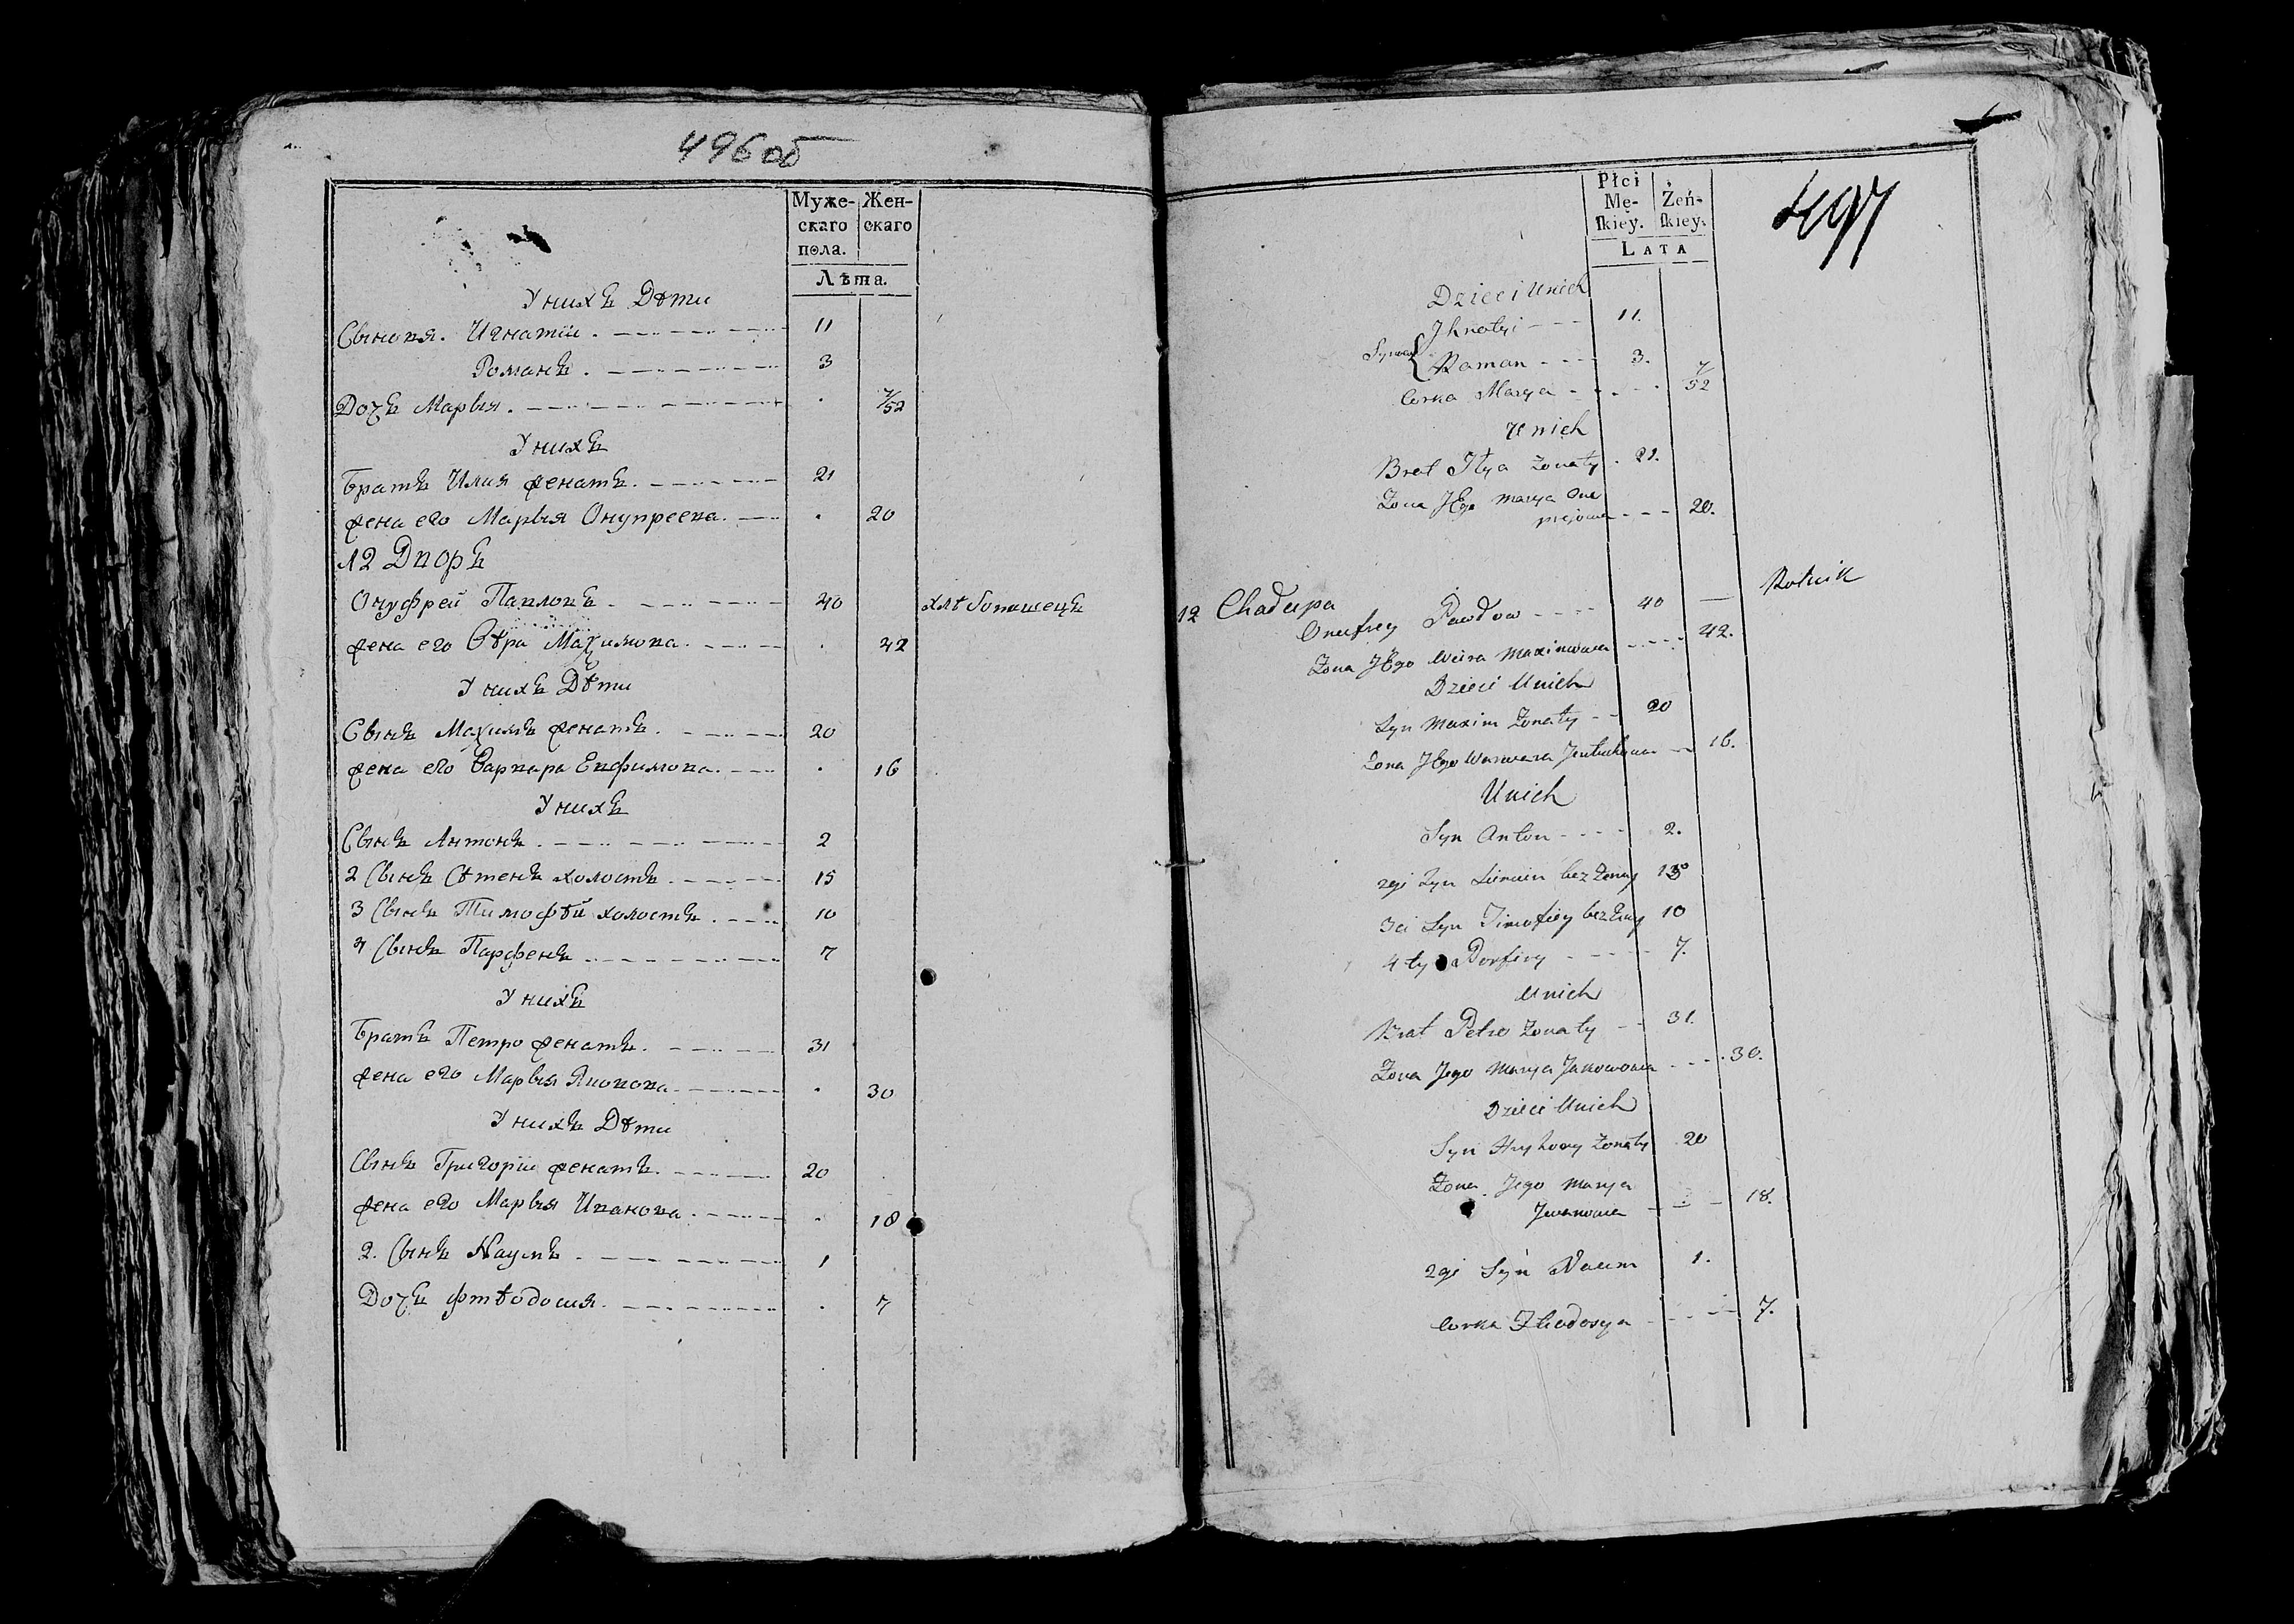 496об
Муже- Жен-
скаго скаго
пола.
Лѣта.
У нихъ Дѣти
Сынов я. Игнатій . 11
Романъ . 3
Дочъ Марья . 7/52
У нихъ
Братъ Илия женатъ . 21
жена его Марья Онупреева . 20
12 Дворъ
Онуфрей Павловъ . 40 хлѣбопашецъ
жена его Вѣра Маѯимова . 42
У нихъ Дѣти
Сынъ Маѯимъ женатъ . 20
жена его Варвара Евфимова . 16
У нихъ
Сынъ Антонъ . 2
2 Сынъ Сѣменъ холостъ . 15
3 Сынъ Тимофѣй холостъ . 10
4 Сынъ Парфенъ . 7
У нихъ
Братъ Петро женатъ . 31
жена его Марья Яковова . 30
У нихъ Дѣти
Сынъ Григорій женатъ . 20
жена его Марья Иванова . 18
2. Сынъ Наумъ . 1
Дочъ Фтѣодосия . 7
497
Płci
Mę- Żeń-
ſkiey. ſkiey.
LATA
Dzieci Unich
Jhnatyi 11.
Synow Raman 3.
Corka Marya 7/52
Unich
Brat Jlya Żonaty 21.
Żona JEgo Marya Onu
prejowa 20.
12 Chałupa
Onufrey Pawłow 40 — Rolnik
Żona JEgo Weira Maximowa 42.
Dzieci Unich
Syn Maxim Żonaty 20
Żona JEgo Warwara 16.
Unich
Syn Anton 2.
2gi Syn bez Żony 15
3ci Syn Timofiey bez Żony 10
4ty Porfiry 7.
Unich
Brat Petro Żonaty 31.
Żona Jego Marya Jakowowa 30.
Dzieci Unich
Syn Hryhory Żonaty 20
Żona Jego Marya
Jwanowa 18.
2gi Syn Naum 1.
Corka 7.